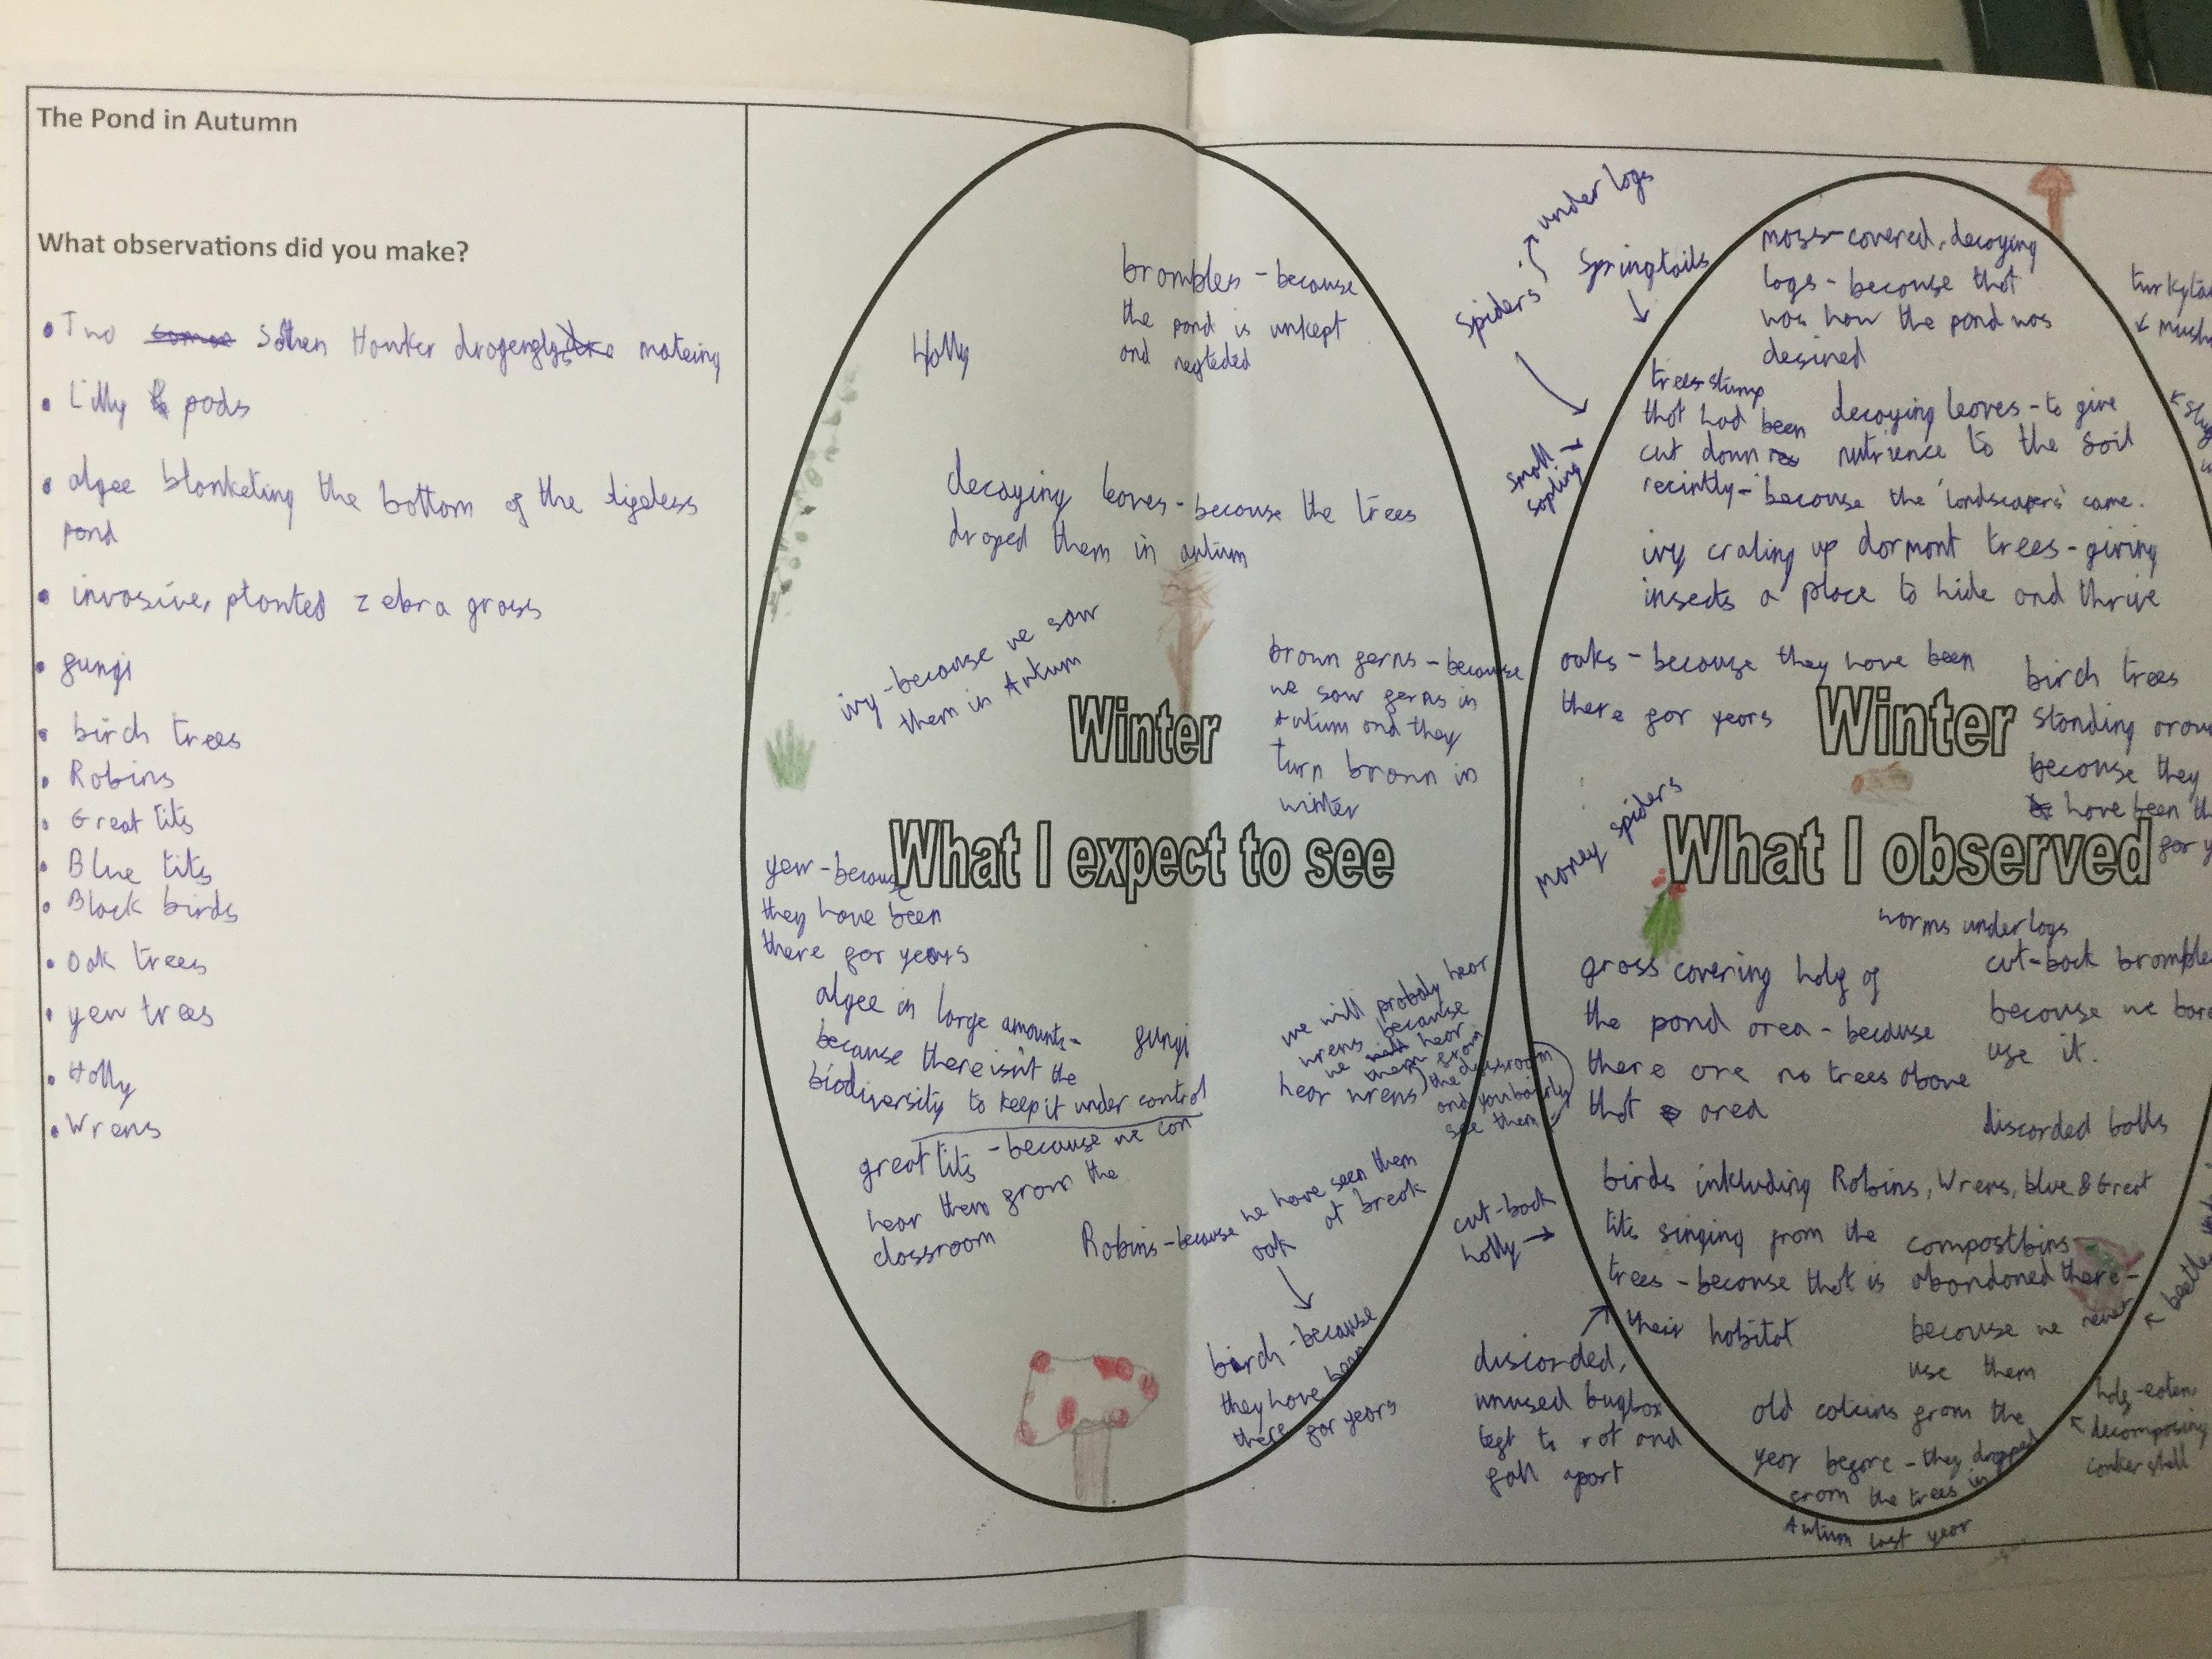 The Pond in Autumn
What observations did you make?
• Two Sothen Hawker mateing
• Lilly pads
• algee blanketing the bottom of the lifeless
pond
• invasive, planted zebra grass
• fungi
• birch trees
• Robins
• Great tits
• Blue tits
• Black birds
• Oak trees
• yew trees
• Holly
• Wrens
Holly
brambles - because
the pond is unkept
and neglected
decaying leaves - because the trees
droped them in autium
ivy - because we saw
them in Autum
brown ferns - because
we saw ferns in
Autum and they
turn brown in
winter
Winter
What I expect to see
yew - because
they have been
there for years
algee in large amounts -
because there isn't the
biodiversity to keep it under control
fungi
we will probaly hear
wrens because
we hear
them from
hear wrens) the classroom
and you barely
see them
great tits - because we can
hear them from the
classroom
Robins - because we have seen them
at break
oak
birch - because
they have been
there for years
Spiders → under logs
Springtails
small
sapling
moss-covered, decaying
logs - because that
was how the pond was
desired
trees stump
that had been
cut down
recintly - because the 'landscapers' came.
decaying leaves - to give
nutrience to the soil
ivy craling up dormant trees - giving
insects a place to hide and thrive
oaks - because they have been
there for years
birch trees
standing
because they
have been
Winter
What I observed
money spiders
worms under logs
grass covering half of
the pond area - because
there are no trees above
that area
cut-back
because we
use it.
discarded balls
birds inkluding Robins, Wrens, blue & Great
tits singing from the
trees - because that is
their habitat
compost bins
abandoned there -
because we never
use them
cut-back
holly →
discarded,
unused bugbox
left to rot and
fall apart
old from the
year before - they dropped
from the trees in
Autum last year
half-eaten
decomposing
conker shell